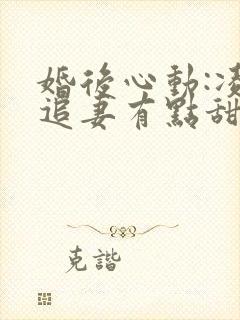 婚後心動:凌
追妻有點甜
克諧